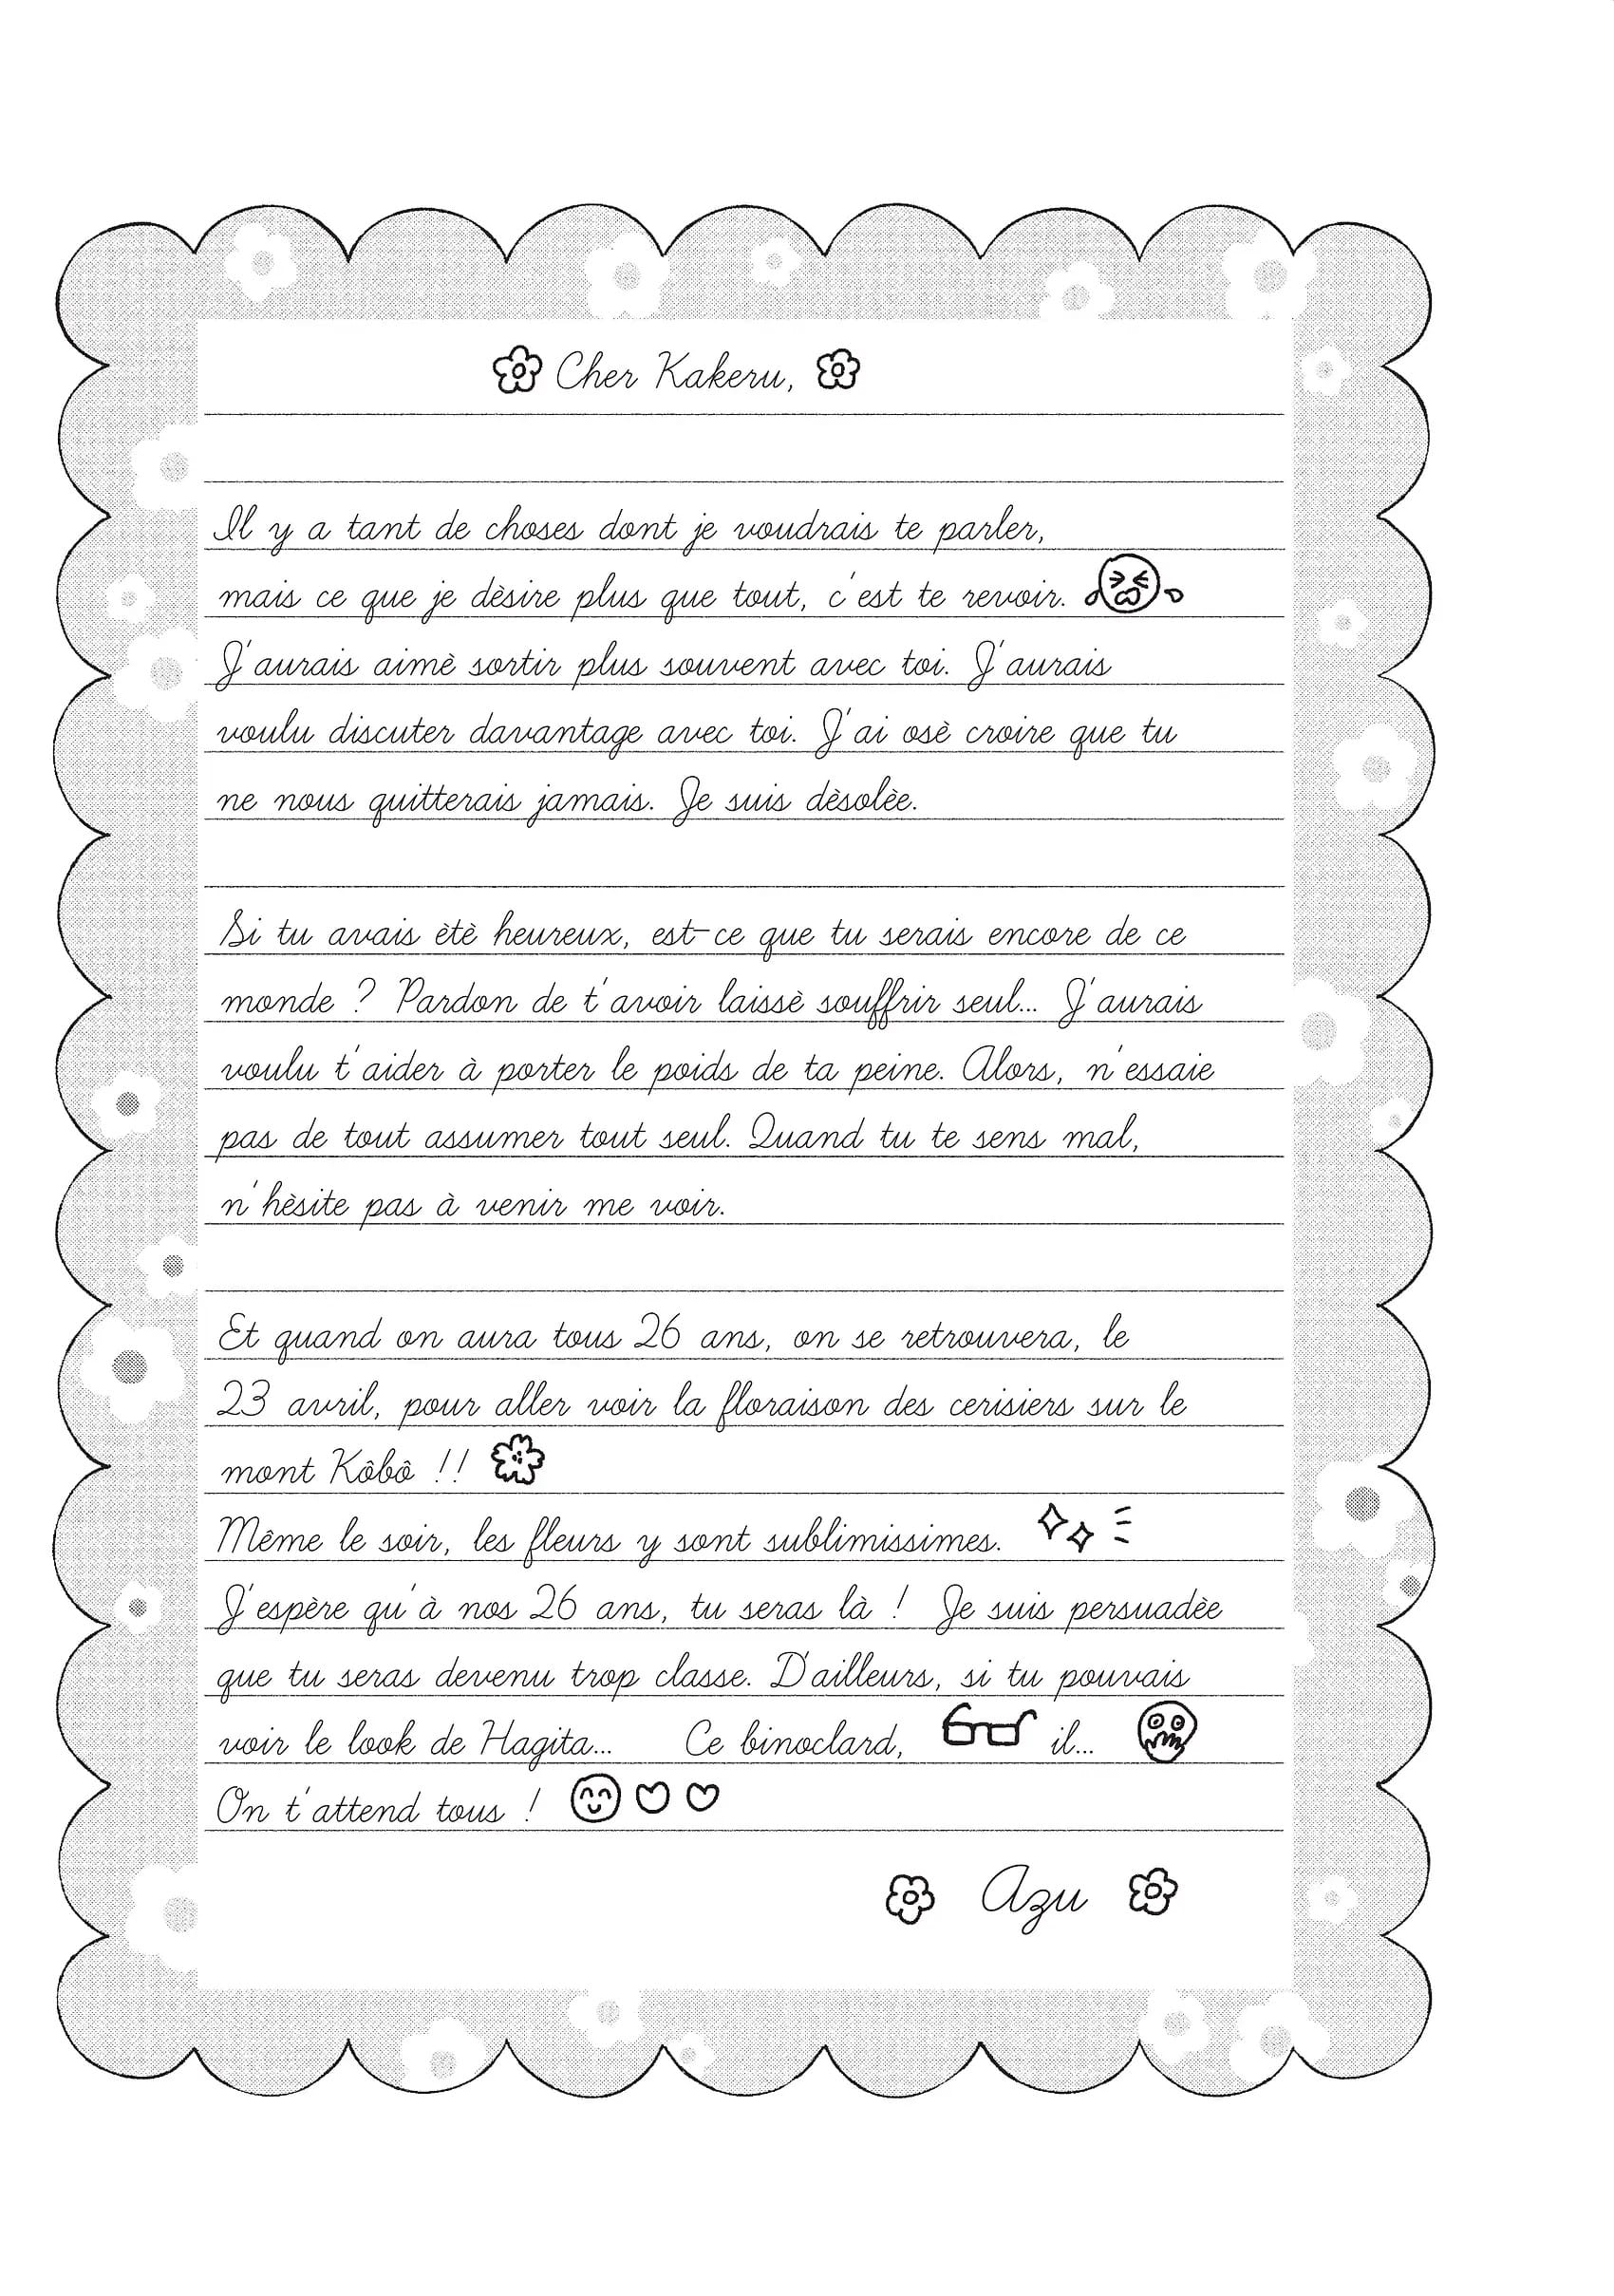 Cher Kakeru,
Il y a tant de choses dont je voudrais te parler,
mais ce que je dèsire plus que tout, c'est te revoir.
J'aurais aimè sortir plus souvent avec toi. J'aurais
voulu discuter davantage avec toi. J'ai osè croire que tu
ne nous quitterais jamais. Je suis dèsolèe.
Si tu avais ètè heureux, est-ce que tu serais encore de ce
monde ? Pardon de t'avoir laissè souffrir seul... J'aurais
voulu t'aider à porter le poids de ta peine. Alors, n'essaie
pas de tout assumer tout seul. Quand tu te sens mal,
n'hèsite pas à venir me voir.
Et quand on aura tous 26 ans, on se retrouvera, le
23 avril, pour aller voir la floraison des cerisiers sur le
mont Kôbô !!
Même le soir, les fleurs y sont sublimissimes.
J'espère qu'à nos 26 ans, tu seras là ! Je suis persuadèe
que tu seras devenu trop classe. D'ailleurs, si tu pouvais
voir le look de Hagita... Ce binoclard, il...
On t'attend tous !
Azu